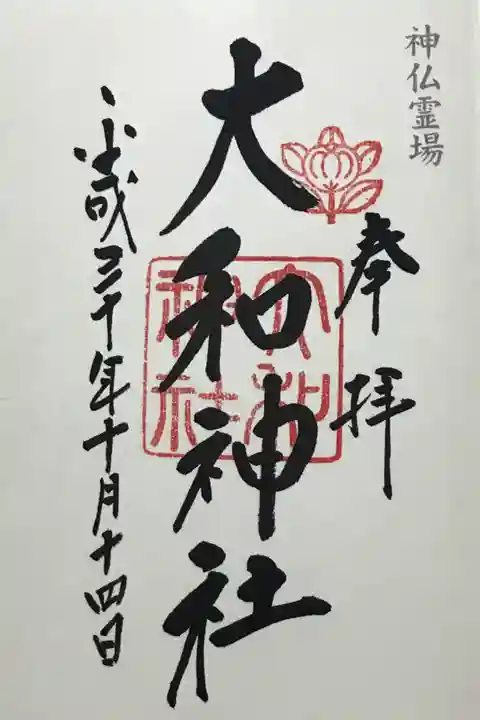 神仏霊場
奉拝
大和神社
大和神社
平成三十年十月十四日